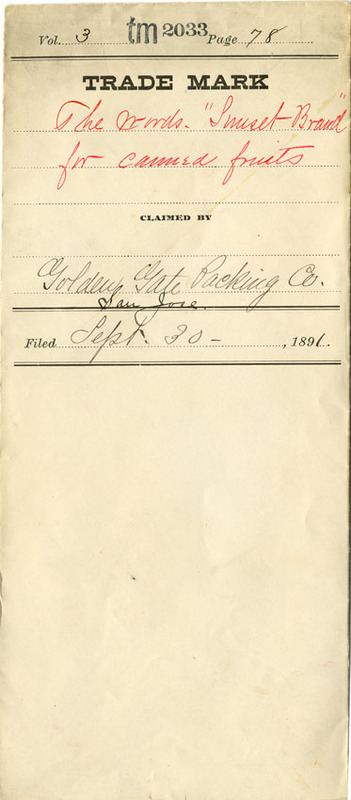 Vol. 3 tm 2033 Page 78
TRADE MARK
The words. "Sunset Brand"
for canned fruits
CLAIMED BY
Golden Gate Packing Co.
San Jose.
Filed Sept. 30 - , 1891.